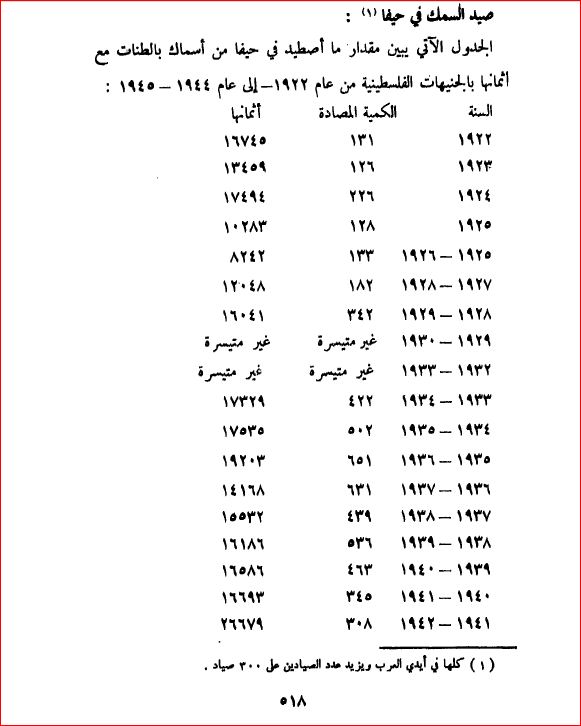 صيد السمك في حيفا (١) :
الجدول الآتي يبين مقدار ما أصطيد في حيفا من أسماك بالطنات مع
أثمانها بالجنيهات الفلسطينية من عام ١٩٢٢ – إلى عام ١٩٤٤ – ١٩٤٥ :
السنة الكمية المصادة أثمانها
١٩٢٢ ١٣١ ١٦٧٤٥
١٩٢٣ ١٢٦ ١٣٤٥٩
١٩٢٤ ٢٢٦ ١٧٤٩٤
١٩٢٥ ١٢٨ ١٠٢٨٣
١٩٢٥ – ١٩٢٦ ١٣٣ ٨٢٤٢
١٩٢٧ – ١٩٢٨ ١٨٢ ١٢٠٤٨
١٩٢٨ – ١٩٢٩ ٣٤٢ ١٦٠٤١
١٩٢٩ – ١٩٣٠ غير متيسرة غير متيسرة
١٩٣٢ – ١٩٣٣ غير متيسرة غير متيسرة
١٩٣٣ – ١٩٣٤ ٤٢٢ ١٧٣٢٩
١٩٣٤ – ١٩٣٥ ٥٠٢ ١٧٥٣٥
١٩٣٥ – ١٩٣٦ ٦٥١ ١٩٢٠٣
١٩٣٦ – ١٩٣٧ ٦٣١ ١٤١٦٨
١٩٣٧ – ١٩٣٨ ٤٣٩ ١٥٥٣٢
١٩٣٨ – ١٩٣٩ ٥٣٦ ١٦١٨٦
١٩٣٩ – ١٩٤٠ ٤٦٣ ١٦٥٨٦
١٩٤٠ – ١٩٤١ ٣٤٥ ١٦٦٩٣
١٩٤١ – ١٩٤٢ ٣٠٨ ٢٦٦٧٩
(١) كلها في أيدي العرب ويزيد عدد الصيادين على ٣٠٠ صياد .
٥١٨